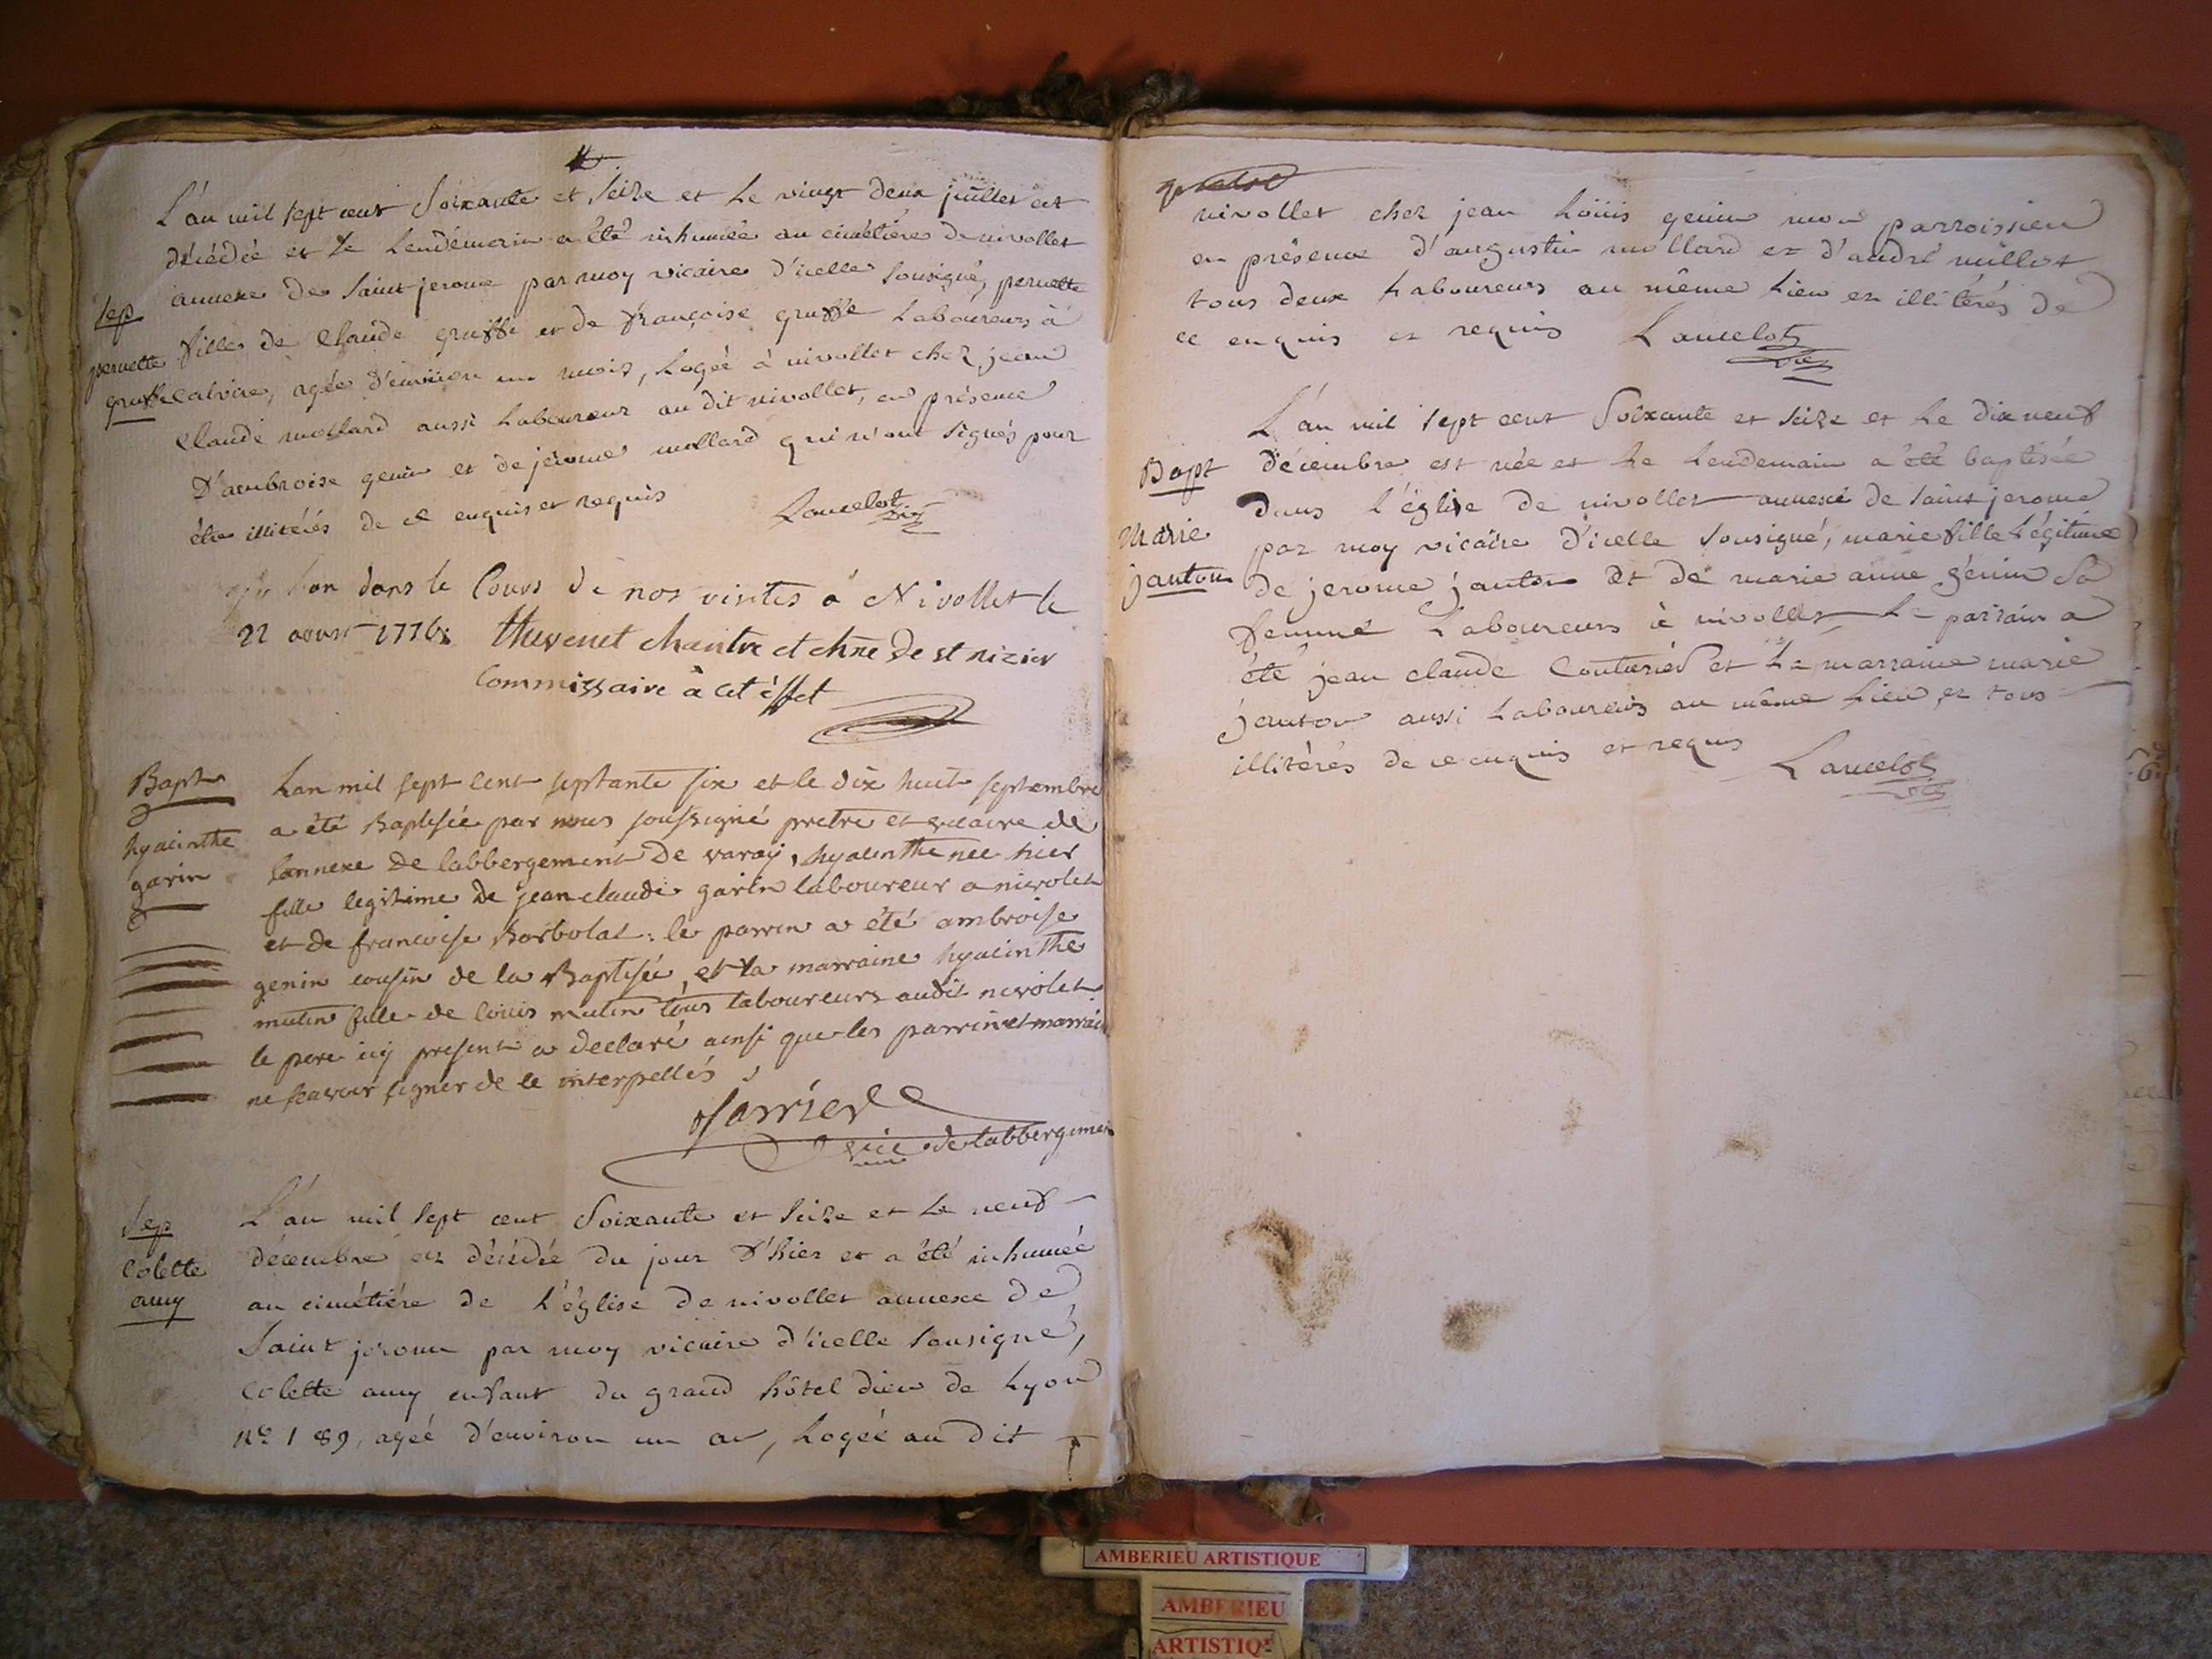 L'an mil sept cent Soixante et seize et le vingt deux juillet est
décédée et le lendemain a été inhumée au cimétiére de nivollet
annexe de saint jerome par moy vicaire d'icelle sousigné, pernette
Sep
pernette
gruffe
fille de Claude gruffe et de françoise gruffe Laboureurs à
agée d'environ un mois, Logée à nivollet chez jean
Claude mollard aussi Laboureur au dit nivollet, en présence
D'ambroise genin et de jérome mollard qui n'ont signés pour
étre illitérés de ce enquis et requis Lancelot vic
bon dans le Cours de nos visites à Nivollet le
22 1776. thevenet chantre et chne de st nizier
Commissaire à cet éffet
Bapt
hyacinthe
garin
Lan mil sept cent septante six et le dix huit septembre
a été Baptisée par nous soussigné pretre et vicaire de
lannexe de labbergement de varey, hyacinthe née hier
fille legitime de jean claude garin laboureur a nivolet
et de francoise Borbolat: le parrin a été ambroise
genin cousin de la Baptisée, et la marraine hyacinthe
mutin fille de louis mutin tous laboureurs audit nivolet
le pere icy present a declaré ainsi que les parrin et marrai
ne scavoir signer de ce interpellés,
vic de labbergemen
Sep
Colette
amy
L'an mil sept cent Soixante et seize et le neuf
décembre est décédée du jour d'hier et a été inhumée
au cimétiére de l'église de nivollet annexe de
Saint jerome par moy vicaire d'icelle sousigné,
Colette amy enfant du grand hôtel dieu de Lyon
No. 189, agée d'environ un an, Logée au dit
nivollet chez jean Loüis genin mon parroissien
en présence d'augustin mollard et d'andré millet
tous deux Laboureurs au même Lieu et illitérés de
ce enquis et requis Lancelot
vic
Bapt
Marie
janton
L'an mil sept cent Soixante et seize et le dix neuf
décembre est née et le lendemain a été baptisée
dans l'église de nivollet annexe de saint jerome
par moy vicaire d'icelle sousigné, marie fille légitime
de jerome janton et de marie anne genin sa
femme Laboureurs à nivollet Le parrain a
été jean claude Couturier et la marraine marie
janton aussi Laboureurs au même Lieu et tous
illitérés de ce enquis et requis Lancelot
vic
AMBERIEU ARTISTIQUE
AMBERIEU
ARTISTIQ